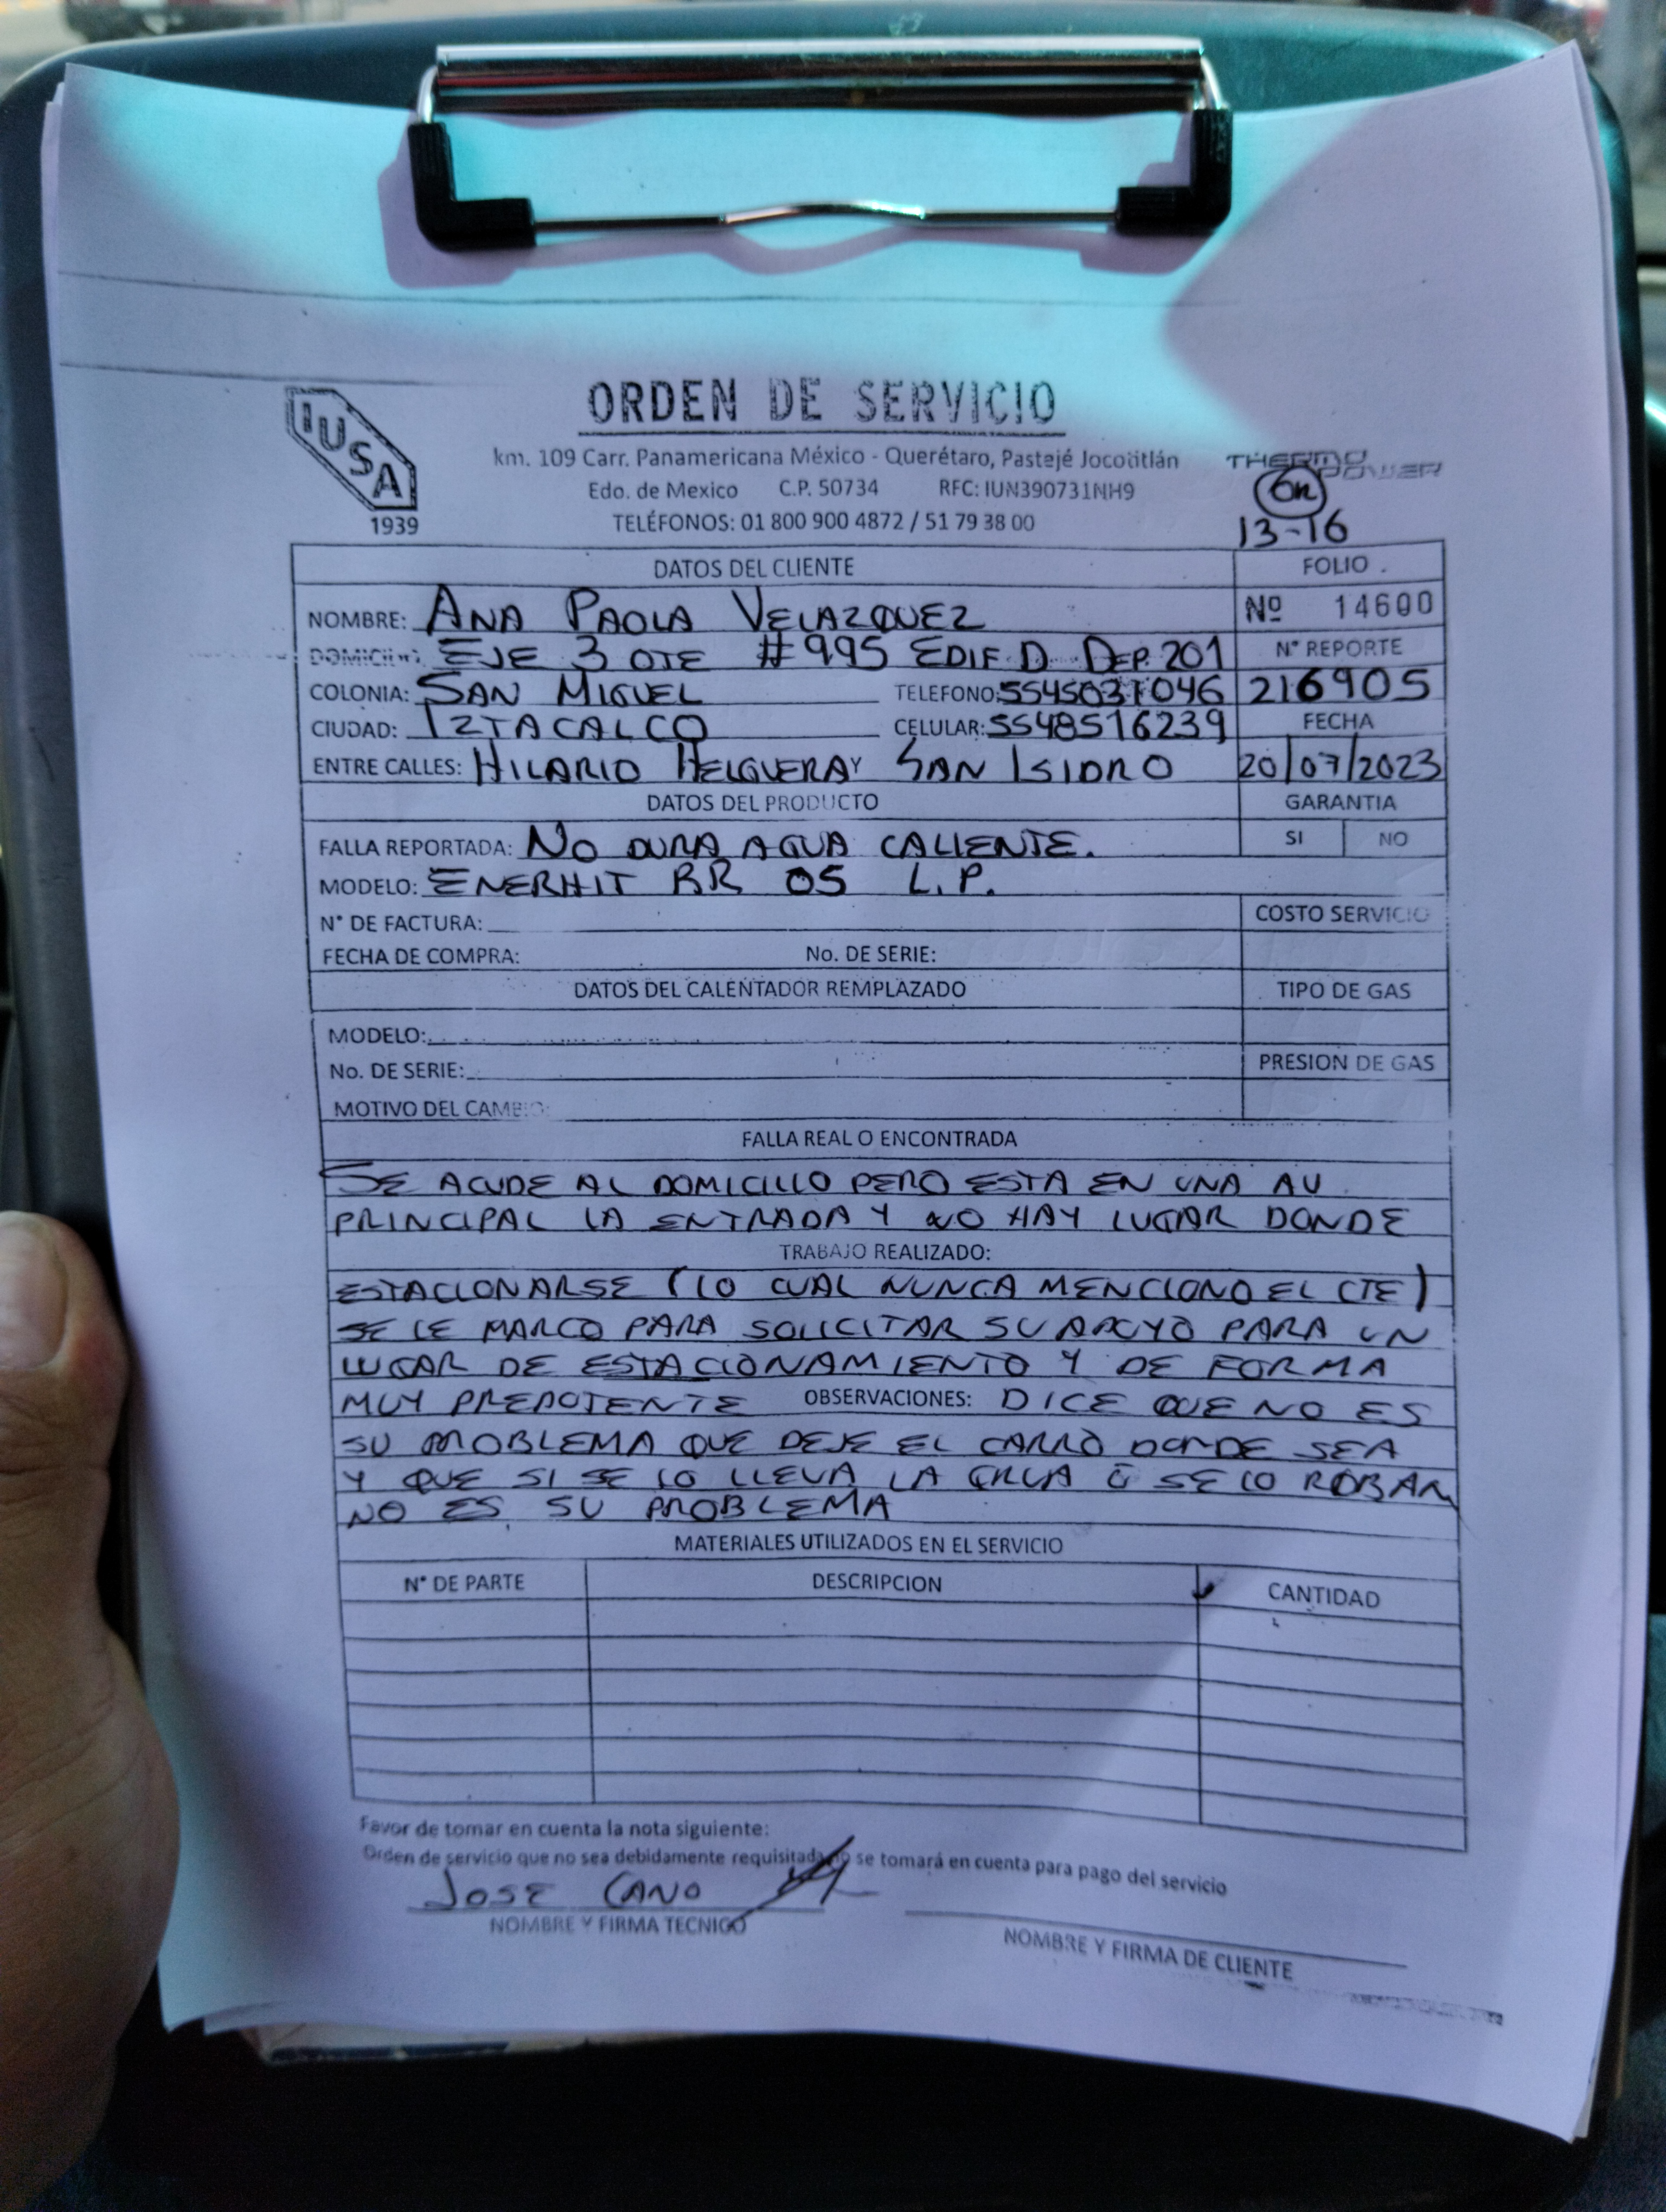 ORDEN DE SERVICIO
IUSA
1939
km. 109 Carr. Panamericana México - Querétaro, Pastejé Jocotitlán
Edo. de Mexico C.P. 50734 RFC: IUN390731NH9
TELÉFONOS: 01 800 900 4872 / 51 79 38 00
THERMO POWER
13-16
DATOS DEL CLIENTE FOLIO
NOMBRE: ANA PAOLA VELAZQUEZ Nº 14600
DOMICILIO: EJE 3 OTE #995 EDIF D DEP. 201 N° REPORTE
COLONIA: SAN MIGUEL TELEFONO: 5545031046 216905
CIUDAD: IZTACALCO CELULAR: 5548516239 FECHA
ENTRE CALLES: HILARIO HELGUERA Y SAN ISIDRO 20/07/2023
DATOS DEL PRODUCTO GARANTIA
FALLA REPORTADA: NO DURA AGUA CALIENTE. SI NO
MODELO: ENERHIT RR 05 L.P.
N° DE FACTURA: COSTO SERVICIO
FECHA DE COMPRA: No. DE SERIE:
DATOS DEL CALENTADOR REMPLAZADO TIPO DE GAS
MODELO:
No. DE SERIE: PRESION DE GAS
MOTIVO DEL CAMBIO:
FALLA REAL O ENCONTRADA
SE ACUDE AL DOMICILIO PERO ESTA EN UNA AV.
PRINCIPAL LA ENTRADA Y NO HAY LUGAR DONDE
TRABAJO REALIZADO:
ESTACIONARSE (LO CUAL NUNCA MENCIONO EL CTE)
SE LE MARCO PARA SOLICITAR SU APOYO PARA UN
LUGAR DE ESTACIONAMIENTO Y DE FORMA
MUY PREPOTENTE OBSERVACIONES: DICE QUE NO ES
SU PROBLEMA QUE DEJE EL CARRO DONDE SEA
Y QUE SI SE LO LLEVA LA GRUA Ó SE LO ROBAN
NO ES SU PROBLEMA
MATERIALES UTILIZADOS EN EL SERVICIO
N° DE PARTE DESCRIPCION CANTIDAD
Favor de tomar en cuenta la nota siguiente:
Orden de servicio que no sea debidamente requisitada no se tomará en cuenta para pago del servicio
JOSE CANO
NOMBRE Y FIRMA TECNICO
NOMBRE Y FIRMA DE CLIENTE